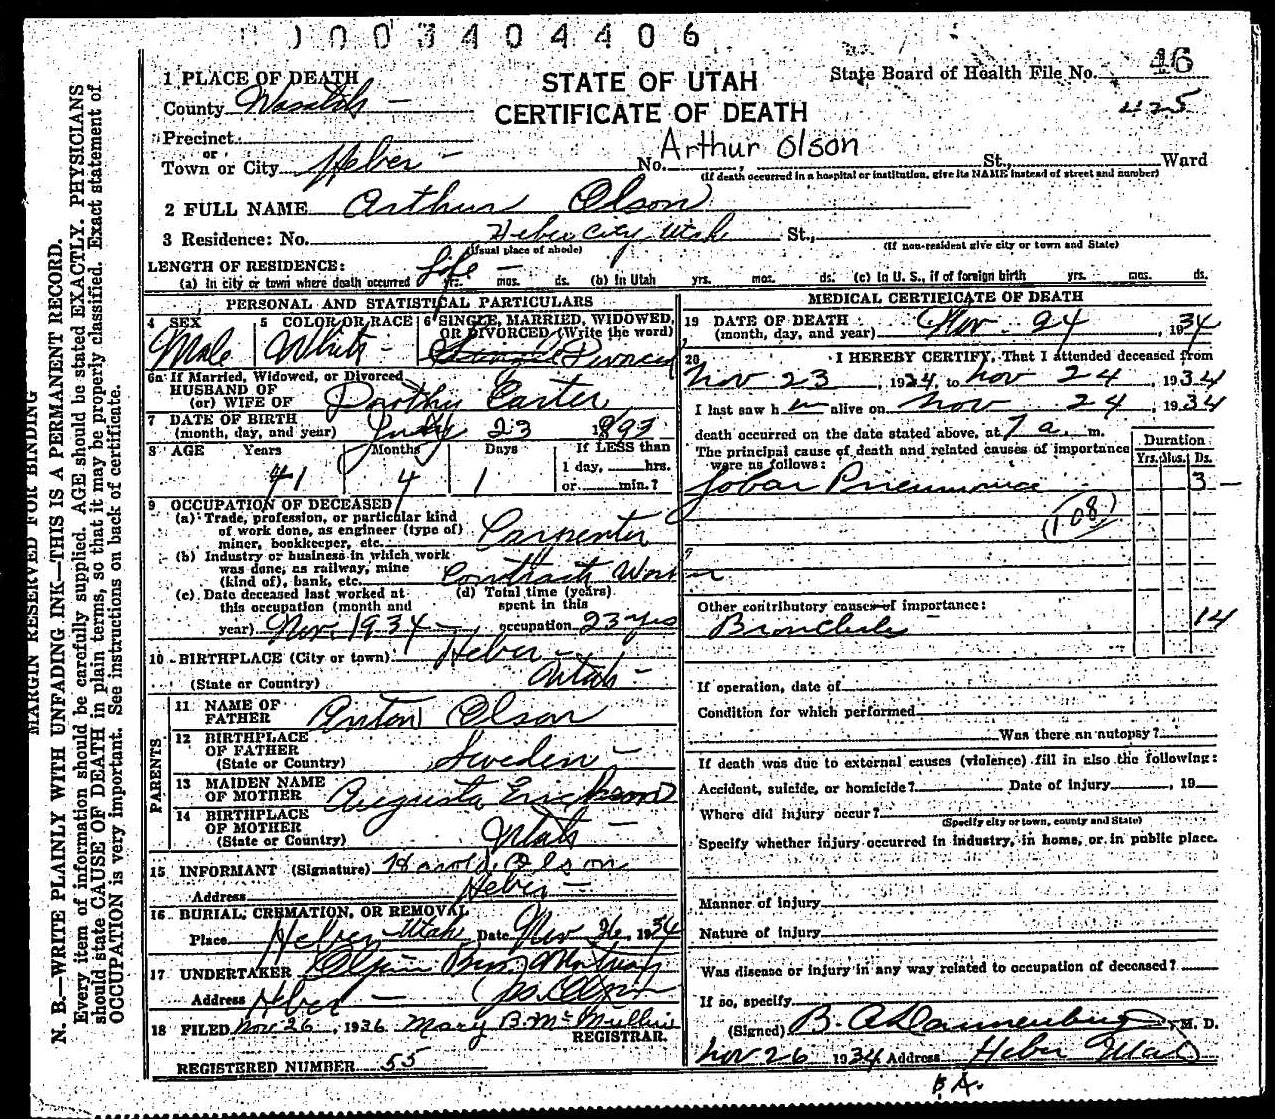 1003404406
1 PLACE OF DEATH
STATE OF UTAH
State Board of Health File No. 46
County Wasatch -
CERTIFICATE OF DEATH
425
Precinct
Arthur Olson
or
Town or City Heber - No. St., Ward
(If death occurred in a hospital or institution, give its NAME instead of street and number)
2 FULL NAME Arthur Olson
3 Residence: No. Heber City, Utah St.,
(Usual place of abode) (If non-resident give city or town and State)
LENGTH OF RESIDENCE:
(a) In city or town where death occurred Life - yrs. mos. ds. (b) In Utah yrs. mos. ds. (c) In U. S., if of foreign birth yrs. mos. ds.
PERSONAL AND STATISTICAL PARTICULARS
4 SEX Male
5 COLOR OR RACE White -
6 SINGLE, MARRIED, WIDOWED, OR DIVORCED (Write the word)
Divorced
6a If Married, Widowed, or Divorced
HUSBAND OF
(or) WIFE OF Dorothy Carter
7 DATE OF BIRTH
(month, day, and year) July 23 1893
8 AGE Years Months Days If LESS than
41 4 1 1 day, hrs.
or min.?
9 OCCUPATION OF DECEASED
(a) Trade, profession, or particular kind
of work done, as engineer (type of)
miner, bookkeeper, etc. Carpenter
(b) Industry or business in which work
was done, as railway, mine
(kind of), bank, etc. Contract Work
(c) Date deceased last worked at
this occupation (month and
year) Nov. 1934 -
(d) Total time (years)
spent in this
occupation 23 yrs
10 BIRTHPLACE (City or town) Heber -
(State or Country) Utah -
PARENTS
11 NAME OF
FATHER Anton Olson
12 BIRTHPLACE
OF FATHER
(State or Country) Sweden -
13 MAIDEN NAME
OF MOTHER Augusta Erickson
14 BIRTHPLACE
OF MOTHER
(State or Country) Utah -
15 INFORMANT (Signature) Harold Olson
Address Heber -
16 BURIAL, CREMATION, OR REMOVAL
Place Heber Utah Date Nov 26, 1934
17 UNDERTAKER Olpin Bros. Mortuary
Address Heber -
18 FILED Nov 26, 1936 Mary B. McMullin
REGISTRAR.
REGISTERED NUMBER 55
MEDICAL CERTIFICATE OF DEATH
19 DATE OF DEATH
(month, day, and year) Nov. 24, 1934
20 I HEREBY CERTIFY, That I attended deceased from
Nov 23, 1934, to Nov 24, 1934
I last saw him alive on Nov 24, 1934
death occurred on the date stated above, at 7 a. m.
The principal cause of death and related causes of importance
were as follows:
Duration
Yrs. Mos. Ds.
Lobar Pneumonia 3 -
(108)
Other contributory causes of importance:
Bronchitis 14
If operation, date of
Condition for which performed
Was there an autopsy?
If death was due to external causes (violence) fill in also the following:
Accident, suicide, or homicide? Date of injury , 19
Where did injury occur?
(Specify city or town, county and State)
Specify whether injury occurred in industry, in home, or in public place.
Manner of injury
Nature of injury
Was disease or injury in any way related to occupation of deceased?
If so, specify
(Signed) B. A. Dannenberg M. D.
Nov 26 1934 Address Heber Utah
B.A.
MARGIN RESERVED FOR BINDING
N. B.—WRITE PLAINLY WITH UNFADING INK—THIS IS A PERMANENT RECORD.
Every item of information should be carefully supplied. AGE should be stated EXACTLY. PHYSICIANS
should state CAUSE OF DEATH in plain terms, so that it may be properly classified. Exact statement of
OCCUPATION is very important. See instructions on back of certificate.